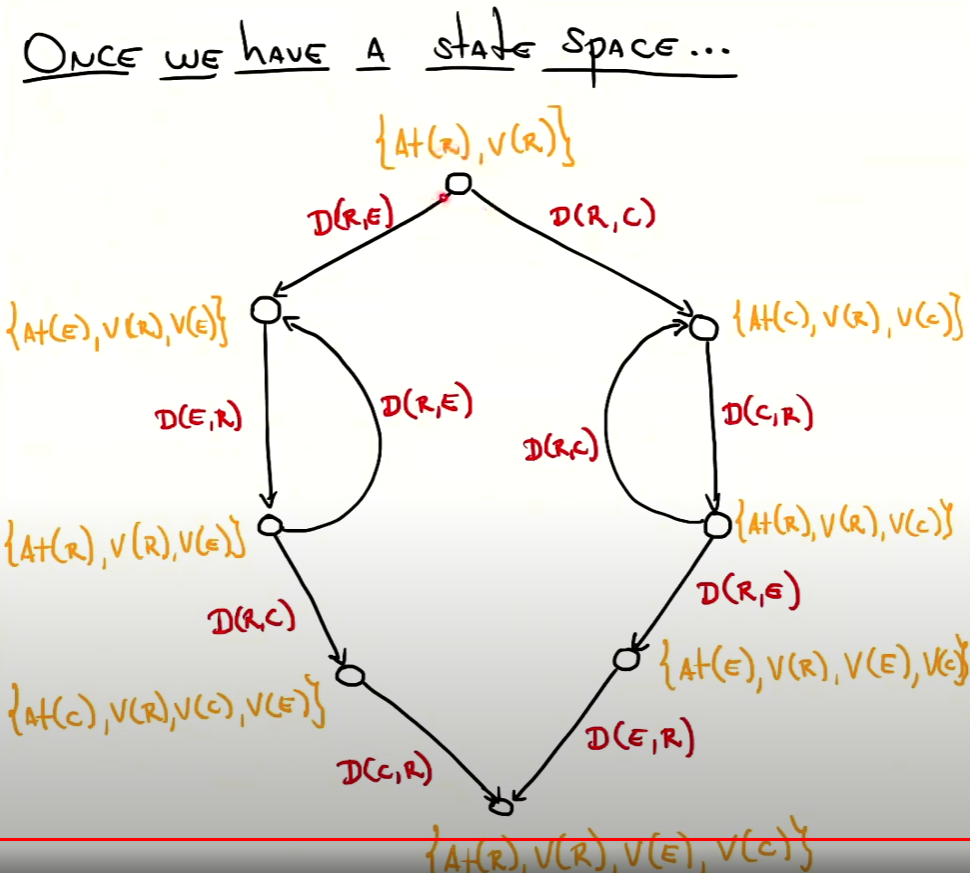 ONCE WE HAVE A STATE SPACE...
{At(R), V(R)}
D(R,E)
D(R,C)
{At(E), V(R), V(E)}
{At(C), V(R), V(C)}
D(E,R)
D(R,E)
D(R,C)
D(C,R)
{At(R), V(R), V(E)}
{At(R), V(R), V(C)}
D(R,C)
D(R,E)
{At(C), V(R), V(C), V(E)}
{At(E), V(R), V(E), V(C)}
D(C,R)
D(E,R)
{At(R), V(R), V(E), V(C)}